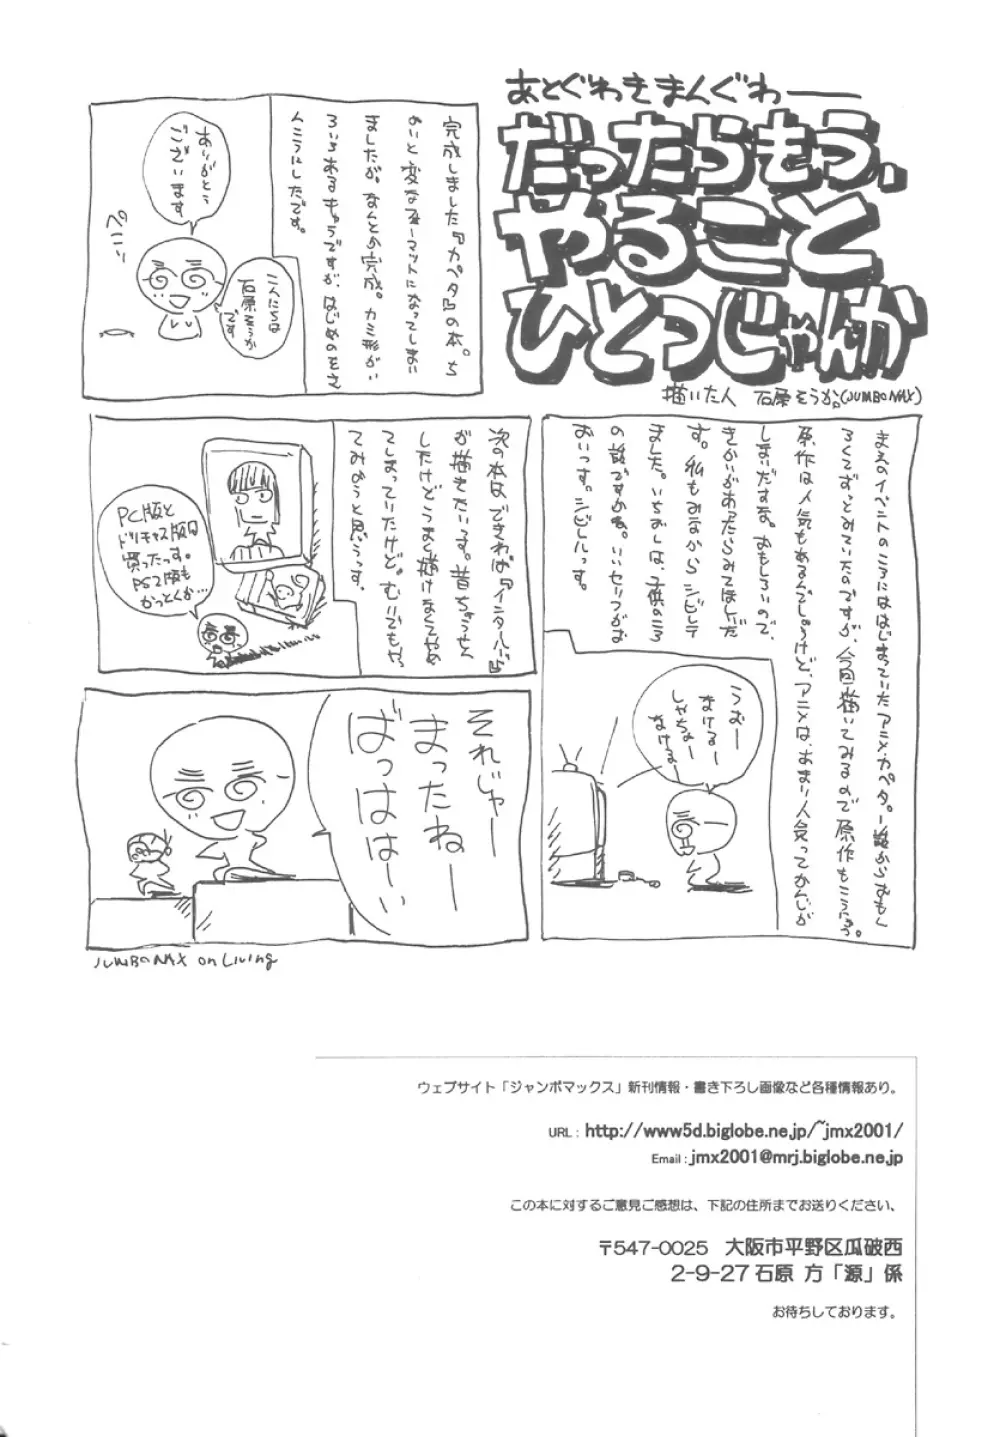 あとぐわきまんぐわー
だったらもう、
やること
ひとつじゃんか
描いた人 石原そうか。(JUMBOMAX)
完成しました『カペタ』の本。ち
ょいと変なフォーマットになってしまい
ましたが、なんとか完成。カミ形がい
ろいろあるキャラですが、はじめのモヒ
カンにしたです。
ありがとう
ございます
こんにちは
石原そうか
です
ペこり
まえのイベントのころにははじまっていたアニメカペタ。1話からおもし
ろくてずっとみていたのですが、今回描いてみるので原作もこうにゅう。
原作は人気もあるんでしょうけど、アニメは、あまり人気ってかんじが
しまいだすな。おもしろいので、
きかいがあったらみてほしいだ
す。私もみながらシビレテ
ました。いちおしは、子供のころ
の話ですかね。いいセリフがお
おいっす。シビレルっす。
うむー
なけるー
しゃちょー
なけるー
次の本は、できれば『イニシャルD』
が描きたいっす。昔ちょうせん
したけどうまく描けなくてやめ
てしまっていたけど。むりでもや
てみようと思うっす。
PC版と
ドリキャス版は
買ったっす。
PS2版も
かっとくか…
それじゃー
まったねー
ばっはは〜い
JUMBOMAX on Living
ウェブサイト「ジャンボマックス」新刊情報・書き下ろし画像など各種情報あり。
URL : http://www5d.biglobe.ne.jp/~jmx2001/
Email : jmx2001@mrj.biglobe.ne.jp
この本に対するご意見ご感想は、下記の住所までお送りください、
〒547-0025 大阪市平野区瓜破西
2-9-27 石原 方「源」係
お待ちしております。